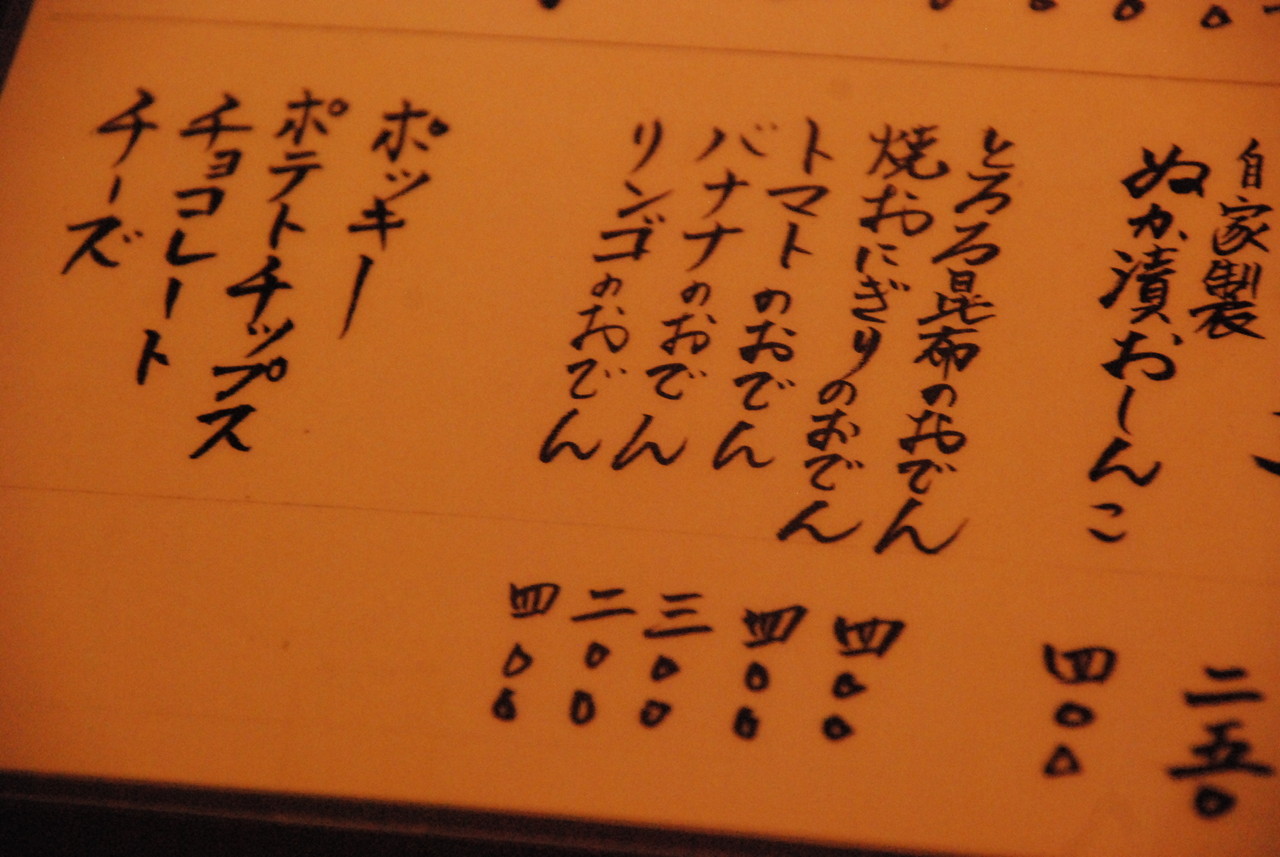 自家製
ぬか漬おーしんこ
とろろ昆布のおでん
焼おにぎりのおでん
トマトのおでん
バナナのおでん
リンゴのおでん
ポッキー
ポテトチップス
チョコレート
チーズ
二五〇
四〇〇
四〇〇
四〇〇
三〇〇
二〇〇
四〇〇